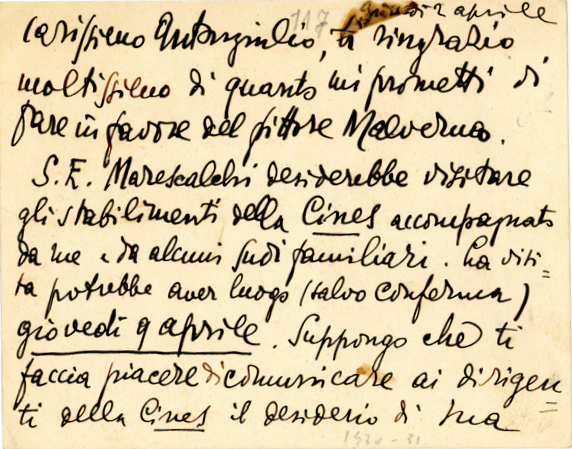 117 Lunedì 2 aprile
Carissimo Antongiulio, ti ringrazio
moltissimo di quanto mi prometti di
fare in favore del pittore Malverna.
S. E. Marescalchi desiderebbe visitare
gli stabilimenti della Cines accompagnato
da me e da alcuni suoi familiari. La visi=
ta potrebbe aver luogo (salvo conferma)
giovedì 9 aprile. Suppongo che ti
faccia piacere di comunicare ai dirigen=
ti della Cines il desiderio di Sua
1930-31